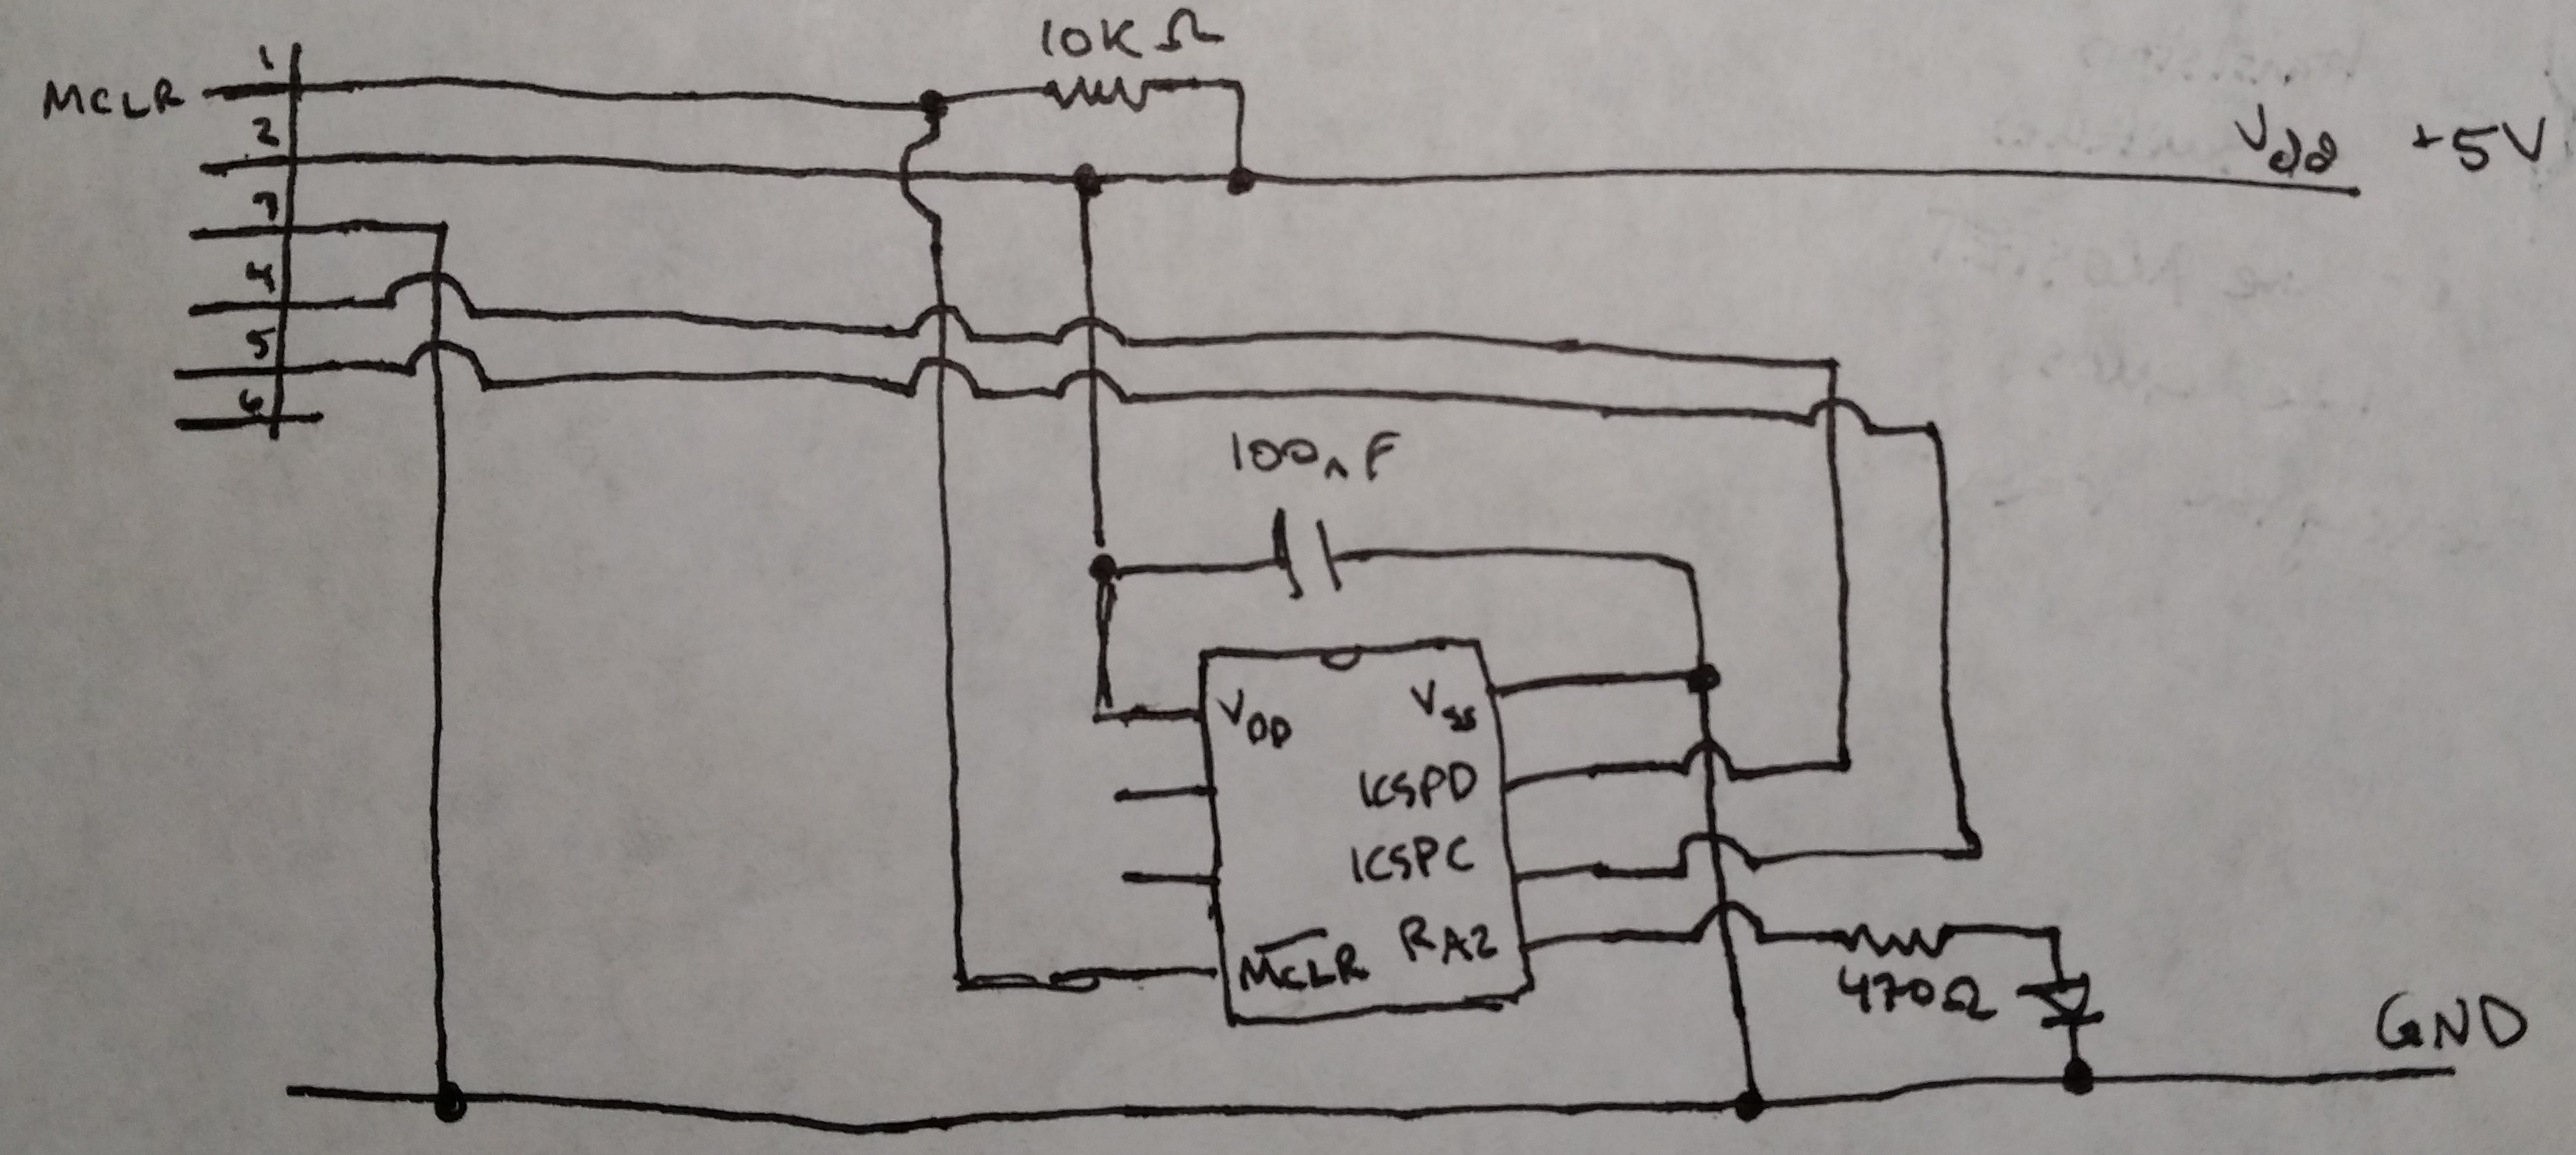 10K Ω
MCLR
1
2
3
4
5
6
Vdd +5V
100nF
VDD
VSS
ICSPD
ICSPC
MCLR
RA2
470Ω
GND